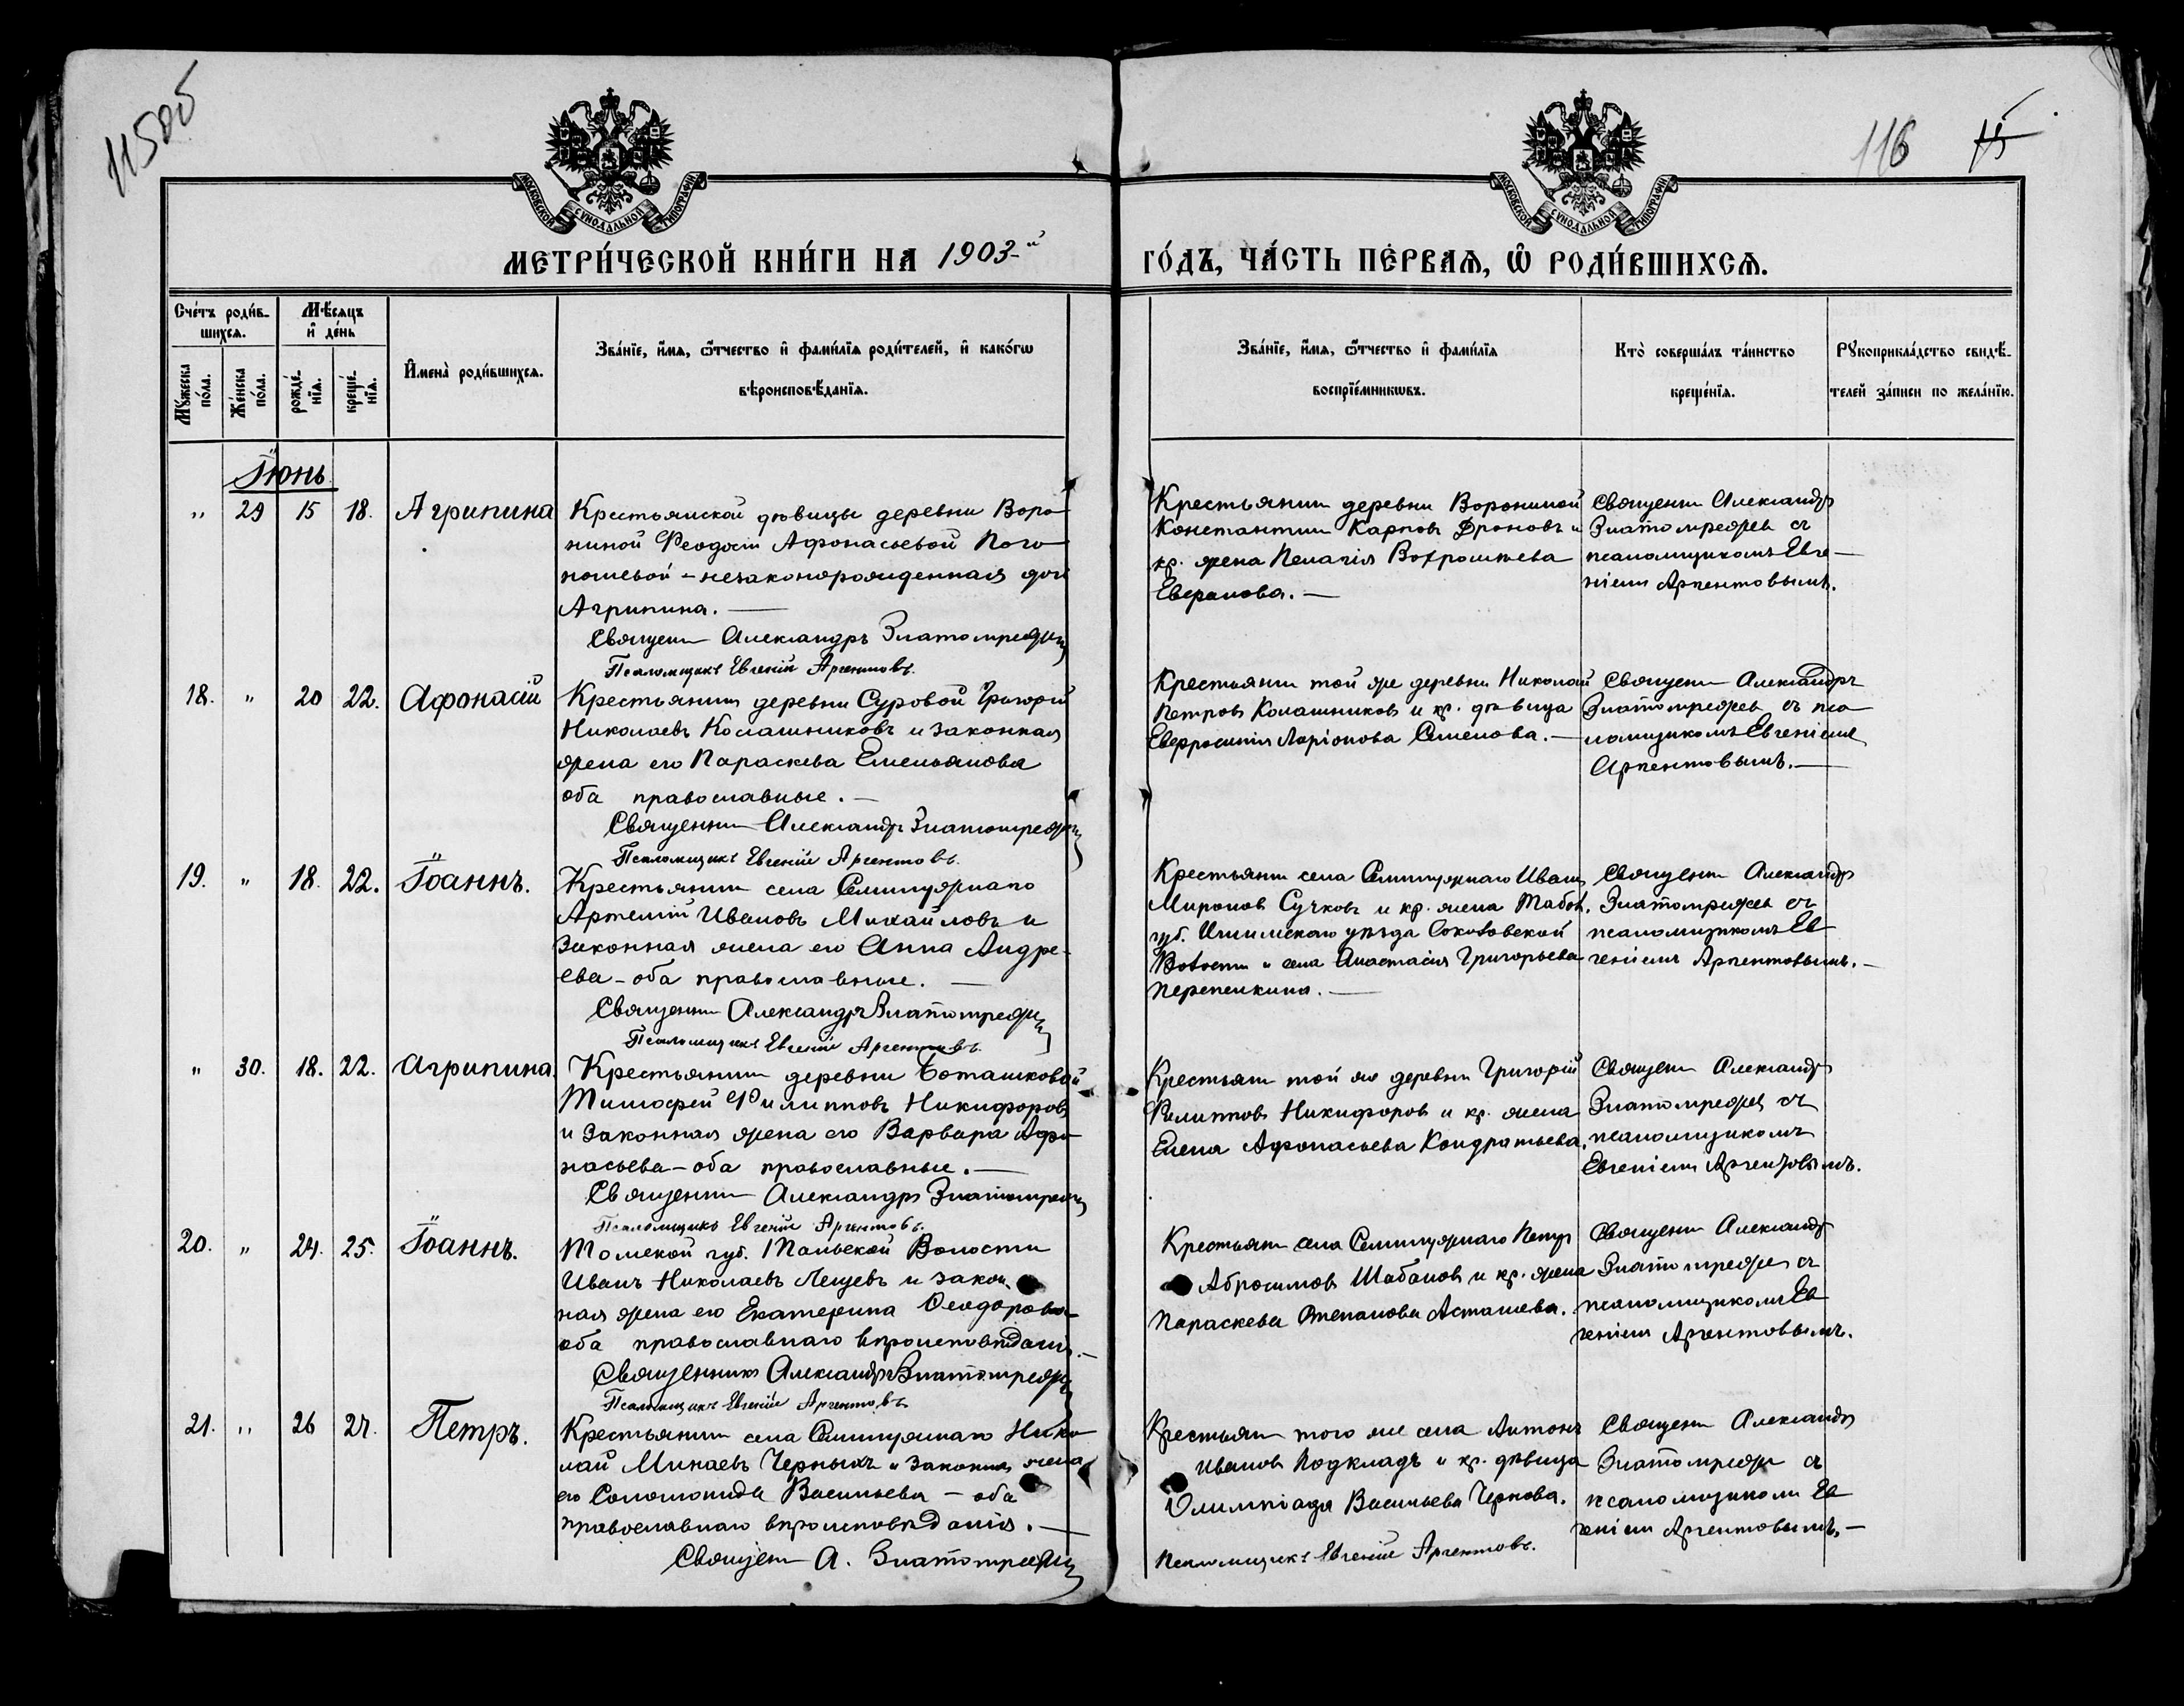 115об
116 115
МОСКОВСКОЙ СѴНОДАЛЬНОЙ ТИПОГРАФІИ
МОСКОВСКОЙ СѴНОДАЛЬНОЙ ТИПОГРАФІИ
МЕТРИ́ЧЕСКОЙ КНИ́ГИ НА 1903-й
ГО́ДЪ, ЧА́СТЬ ПЕ́РВАЯ, Ѡ҆ РОДИ́ВШИХСЯ.
Сче́тъ роди́в-
шихся.
Мꙋжеска по́ла.
Же́нска по́ла.
Мѣ́сяцъ
и҆ де́нь
рожде́-
нїя.
креще́-
нїя.
И҆мена̀ роди́вшихся.
Зва́нїе, и҆́мя, ѻ҆́тчество и҆ фами́лїя роди́телей, и҆ како́гѡ
вѣроисповѣ́данїя.
Зва́нїе, и҆́мя, ѻ҆́тчество и҆ фами́лїя
воспрїе́мникѡвъ.
Кто̀ соверша́лъ та́инство
креще́нїя.
Рꙋкоприкла́дство свидѣ́-
телей за́писи по жела́нїю.
Іюнь
" 29 15 18. Агрипина
Крестьянской дѣвицы деревни Воро-
ниной Феодосіи Афонасьевой Пого-
{}ношевой - незаконорожденная доч
Агрипина. —
Священ Александръ Златомрежев
Псаломщикъ Евгеній Аргентовъ.
Крестьянин деревни Ворониной
Константин Карпов Фроновъ и
кр. жена Пелагія
Священ Александр
Златомрежев съ
псаломщикомъ Евге-
ніем Аргентовымъ.
18. " 20 22. Афонасій
Крестьянин деревни Суровой Григорій
Николаевъ Колашниковъ и законная
жена его Параскева Емельянова
оба православные. —
Священник Александр Златомрежев
Псаломщикъ Евгеній Аргентовъ.
Крестьянин той же деревни Николай
Петров Колашников и кр. дѣвица
Евфросинія Ларіонова Семенова. —
Священ Александръ
Златомрежев съ пса-
ломщикомъ Евгеніем
Аргентовымъ. —
19. " 18. 22. Іоаннъ.
Крестьянин села Семилужнаго
Артемій Ивановъ Михайловъ и
законная жена его Анна Андре-
ева - оба православные. —
Священник Александръ Златомрежев
Псаломщикъ Евгеній Аргентовъ.
Крестьянин села Семилужнаго Иван
Миронов Сучковъ и кр. жена Тобол.
губ. Ишимскаго уѣзда Соколовской
Волости и села Анастасія Григорьева
Перепелкина. —
Священник Александр
Златомрежев съ
псаломщикомъ Ев
геніем Аргентовымъ. —
" 30. 18. 22. Агрипина.
Крестьянин деревни Боташковой
Тимофей Филипповъ Никифоров
и законная жена его Варвара Афо-
насьева - оба православные. —
Священник Александр Златомрежев
Псаломщикъ Евгеній Аргентовъ.
Крестьян той же деревни Григорій
Филиппов Никифоров и кр. жена
Елена Афонасьева Кондратьева.
Священ Александр
Златомрежев съ
псаломщикомъ
Евгеніем Аргентовымъ.
20. " 24. 25. Іоаннъ.
Томской губ. Тальской Волости
Иванъ Николаевъ Лещевъ и закон
ная жена его Екатерина Ѳеодорова
оба православнаго вѣроисповѣданія. —
Священникъ Александр Златомрежев
Псаломщикъ Евгеній Аргентовъ
Крестьян села Семилужнаго Петр
Абросимов Шабанов и кр. жена
Параскева Степанова Асташева.
Священ Александр
Златомрежев съ
псаломщикомъ Ев
геніем Аргентовымъ.
21. " 26 27. Петръ.
Крестьянин села Семилужнаго Нико-
лай Минаевъ Черныхъ и законная жена
его Соломонида Васильева - оба
православнаго вѣроисповѣданія. —
Священ А. Златомрежев
Крестьян того же села Антонъ
Иванов Подкладъ и кр. дѣвица
Олимпіада Васильева Чернова.
Псаломщикъ Евгеній Аргентовъ.
Священ Александр
Златомрежев съ
псаломщиком Ев
геніем Аргентовымъ. —